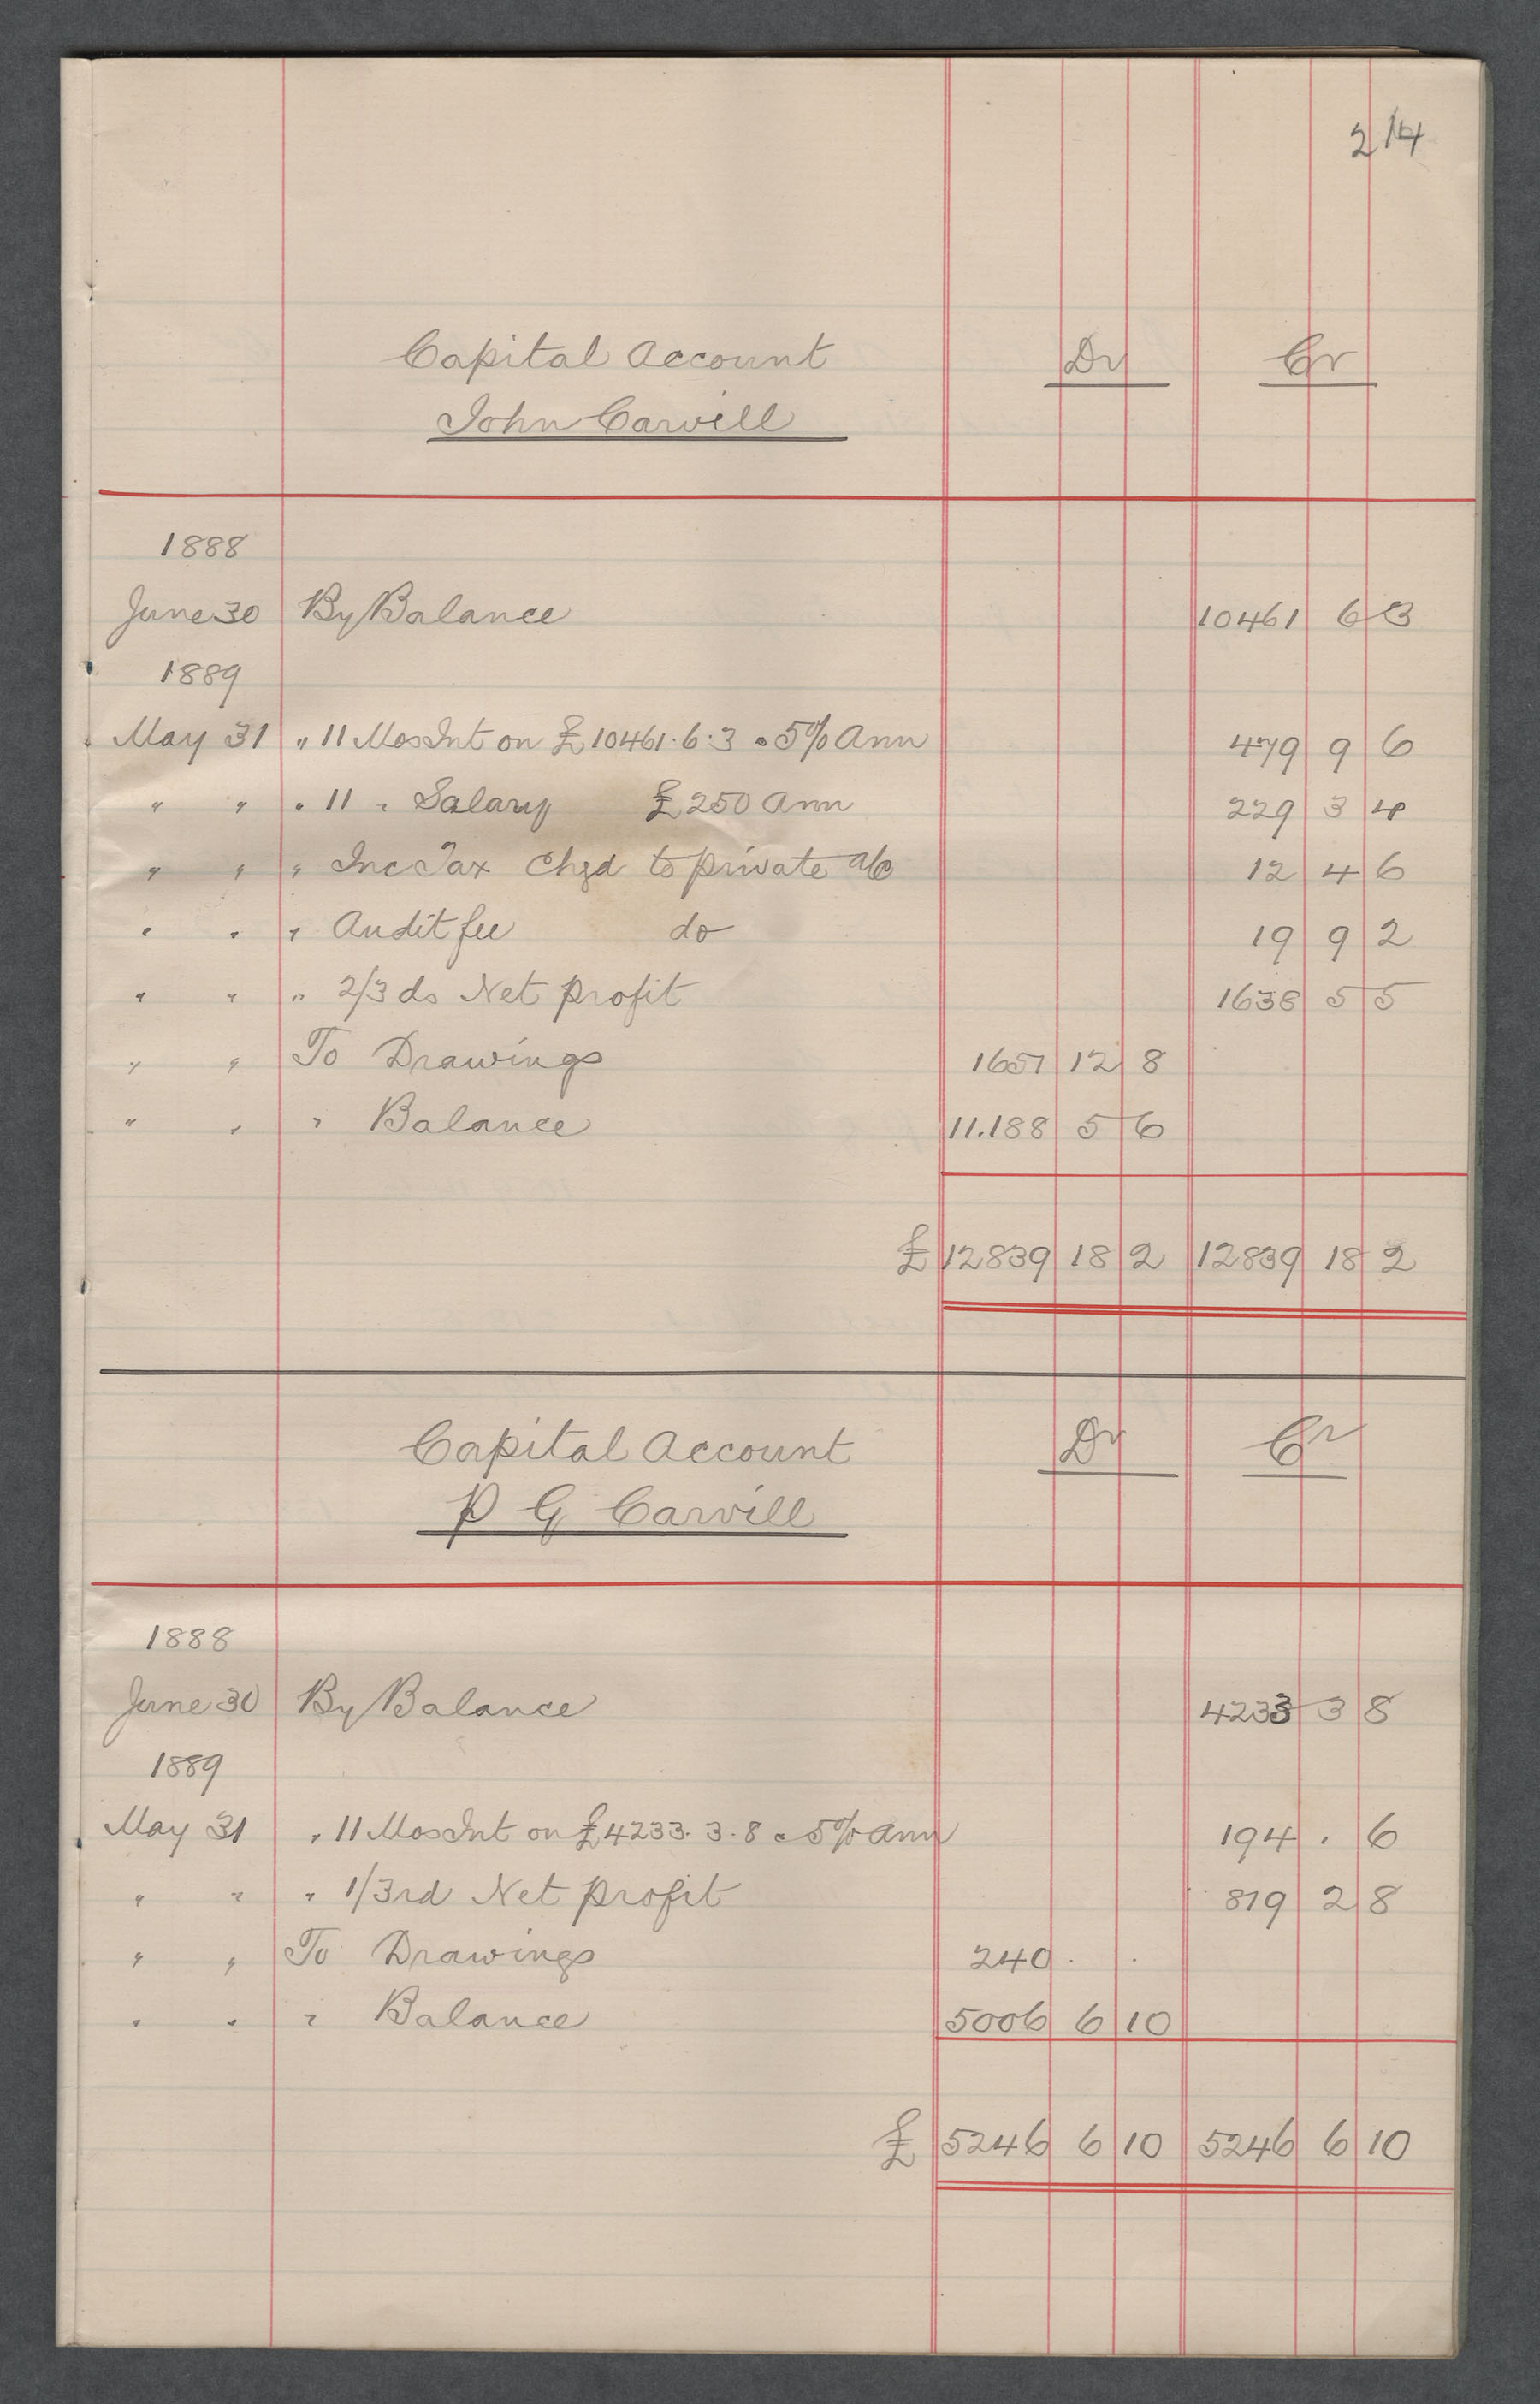 214
Capital Account Dr Cr
John Carvill
1888
June 30 By Balance 10461 6 3
1889
May 31 " 11 Mos Int on £10461.6.3 @ 5% Ann 479 9 6
" " " 11 " Salary £250 Ann 229 3 4
" " " Inc Tax Chgd to private a/c 12 4 6
" " " Audit fee do 19 9 2
" " " 2/3 ds Net profit 1638 5 5
" " To Drawings 1651 12 8
" " " Balance 11.188 5 6
£ 12839 18 2 12839 18 2
Capital Account Dr Cr
P G Carvill
1888
June 30 By Balance 4233 3 8
1889
May 31 " 11 Mos Int on £4233.3.8 @ 5% Ann 194 . 6
" " " 1/3rd Net profit 819 2 8
" " To Drawings 240 . .
" " " Balance 5006 6 10
£ 5246 6 10 5246 6 10